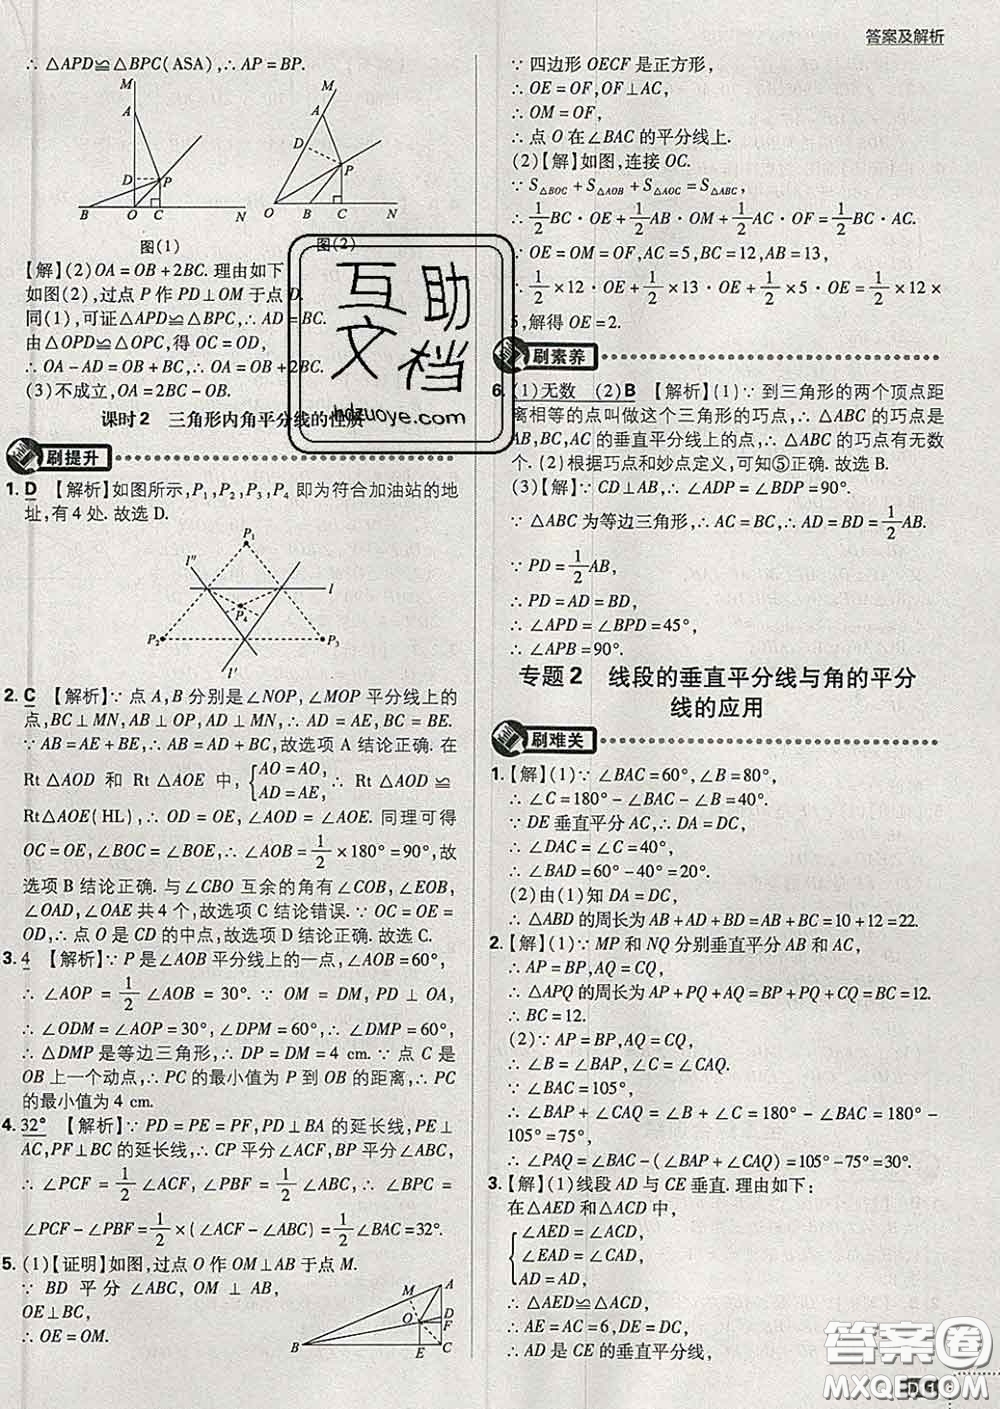 答案及解析
∴ △APD≌△BPC(ASA),∴ AP=BP.
M
A
D
P
B
O
C
N
图(1)
M
A
D
P
O
B
C
N
图(2)
【解】(2)OA=OB+2BC. 理由如下
如图(2),过点 P 作 PD⊥OM 于点 D.
同(1),可证△APD≌△BPC,∴ AD=BC.
由△OPD≌△OPC,得 OC=OD,
∴ OA-AD=OB+BC,∴ OA=OB+2BC.
(3)不成立,OA=2BC-OB.
课时2 三角形内角平分线的性质
刷提升
1. D 【解析】如图所示,P₁,P₂,P₃,P₄ 即为符合加油站的地
址,有4处. 故选 D.
P₁
l″
l
P₄
P₂
P₃
l′
2. C 【解析】∵ 点 A,B 分别是∠NOP,∠MOP 平分线上的
点,BC⊥MN,AB⊥OP,AD⊥MN,∴ AD=AE,BC=BE.
∵ AB=AE+BE,∴ AB=AD+BC,故选项 A 结论正确. 在
Rt△AOD 和 Rt△AOE 中,{AO=AO, AD=AE,∴ Rt△AOD≌
Rt△AOE(HL),∴ OD=OE,∠AOD=∠AOE. 同理可得
OC=OE,∠BOC=∠BOE,∴ ∠AOB=1/2×180°=90°,故
选项 B 结论正确. 与∠CBO 互余的角有∠COB,∠EOB,
∠OAD,∠OAE 共4个,故选项 C 结论错误. ∵ OC=OE=
OD,∴ 点 O 是 CD 的中点,故选项 D 结论正确. 故选 C.
3. 4 【解析】∵ P 是∠AOB 平分线上的一点,∠AOB=60°,
∴ ∠AOP=1/2∠AOB=30°. ∵ OM=DM,PD⊥OA,
∴ ∠ODM=∠AOP=30°,∠DPM=60°,∴ ∠DMP=60°,
∴ △DMP 是等边三角形,∴ DP=DM=4 cm. ∵ 点 C 是
OB 上一个动点,∴ PC 的最小值为 P 到 OB 的距离,∴ PC
的最小值为4 cm.
4. 32° 【解析】∵ PD=PE=PF,PD⊥BA 的延长线,PE⊥
AC,PF⊥BC 的延长线,∴ CP 平分∠ACF,BP 平分∠ABC,
∴ ∠PCF=1/2∠ACF,∠PBF=1/2∠ABC,∴ ∠BPC=
∠PCF-∠PBF=1/2×(∠ACF-∠ABC)=1/2∠BAC=32°.
5. (1)【证明】如图,过点 O 作 OM⊥AB 于点 M.
∵ BD 平分∠ABC, OM⊥AB,
OE⊥BC,
∴ OE=OM.
A
M
O
D
F
B
E
C
∵ 四边形 OECF 是正方形,
∴ OE=OF,OF⊥AC,
∴ OM=OF,
∴ 点 O 在∠BAC 的平分线上.
(2)【解】如图,连接 OC.
∵ S△BOC+S△AOB+S△AOC=S△ABC,
∴ 1/2BC·OE+1/2AB·OM+1/2AC·OF=1/2BC·AC.
∵ OE=OM=OF,AC=5,BC=12,AB=13,
∴ 1/2×12·OE+1/2×13·OE+1/2×5·OE=1/2×12×
5,解得 OE=2.
刷素养
6. (1)无数 (2)B 【解析】(1)∵ 到三角形的两个顶点距
离相等的点叫做这个三角形的巧点,∴ △ABC 的巧点是
AB,BC,AC 的垂直平分线上的点,∴ △ABC 的巧点有无数
个. (2)根据巧点和妙点定义,可知⑤正确. 故选 B.
(3)【解】∵ CD⊥AB,∴ ∠ADP=∠BDP=90°.
∵ △ABC 为等边三角形,∴ AC=BC,∴ AD=BD=1/2AB.
∵ PD=1/2AB,
∴ PD=AD=BD,
∴ ∠APD=∠BPD=45°,
∴ ∠APB=90°.
专题2 线段的垂直平分线与角的平分
线的应用
刷难关
1. 【解】(1)∵ ∠BAC=60°,∠B=80°,
∴ ∠C=180°-∠BAC-∠B=40°.
∵ DE 垂直平分 AC,∴ DA=DC,
∴ ∠DAC=∠C=40°,
∴ ∠BAD=60°-40°=20°.
(2)由(1)知 DA=DC,
∴ △ABD 的周长为 AB+AD+BD=AB+BC=10+12=22.
2. 【解】(1)∵ MP 和 NQ 分别垂直平分 AB 和 AC,
∴ AP=BP,AQ=CQ,
∴ △APQ 的周长为 AP+PQ+AQ=BP+PQ+CQ=BC=12.
∴ BC=12.
(2)∵ AP=BP,AQ=CQ,
∴ ∠B=∠BAP,∠C=∠CAQ.
∵ ∠BAC=105°,
∴ ∠BAP+∠CAQ=∠B+∠C=180°-∠BAC=180°-
105°=75°,
∴ ∠PAQ=∠BAC-(∠BAP+∠CAQ)=105°-75°=30°.
3. 【解】(1)线段 AD 与 CE 垂直. 理由如下:
在△AED 和△ACD 中,
{∠AED=∠ACD,
∠EAD=∠CAD,
AD=AD,
∴ △AED≌△ACD,
∴ AE=AC=6,DE=DC,
∴ AD 是 CE 的垂直平分线,
互助
文档
hdzuoye.com
答案圈
MXQE.COM